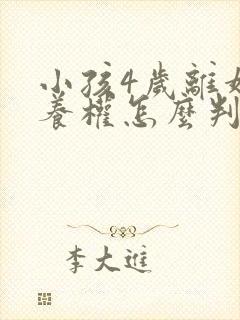 小孩4歲離婚
養權怎麼判
李大進